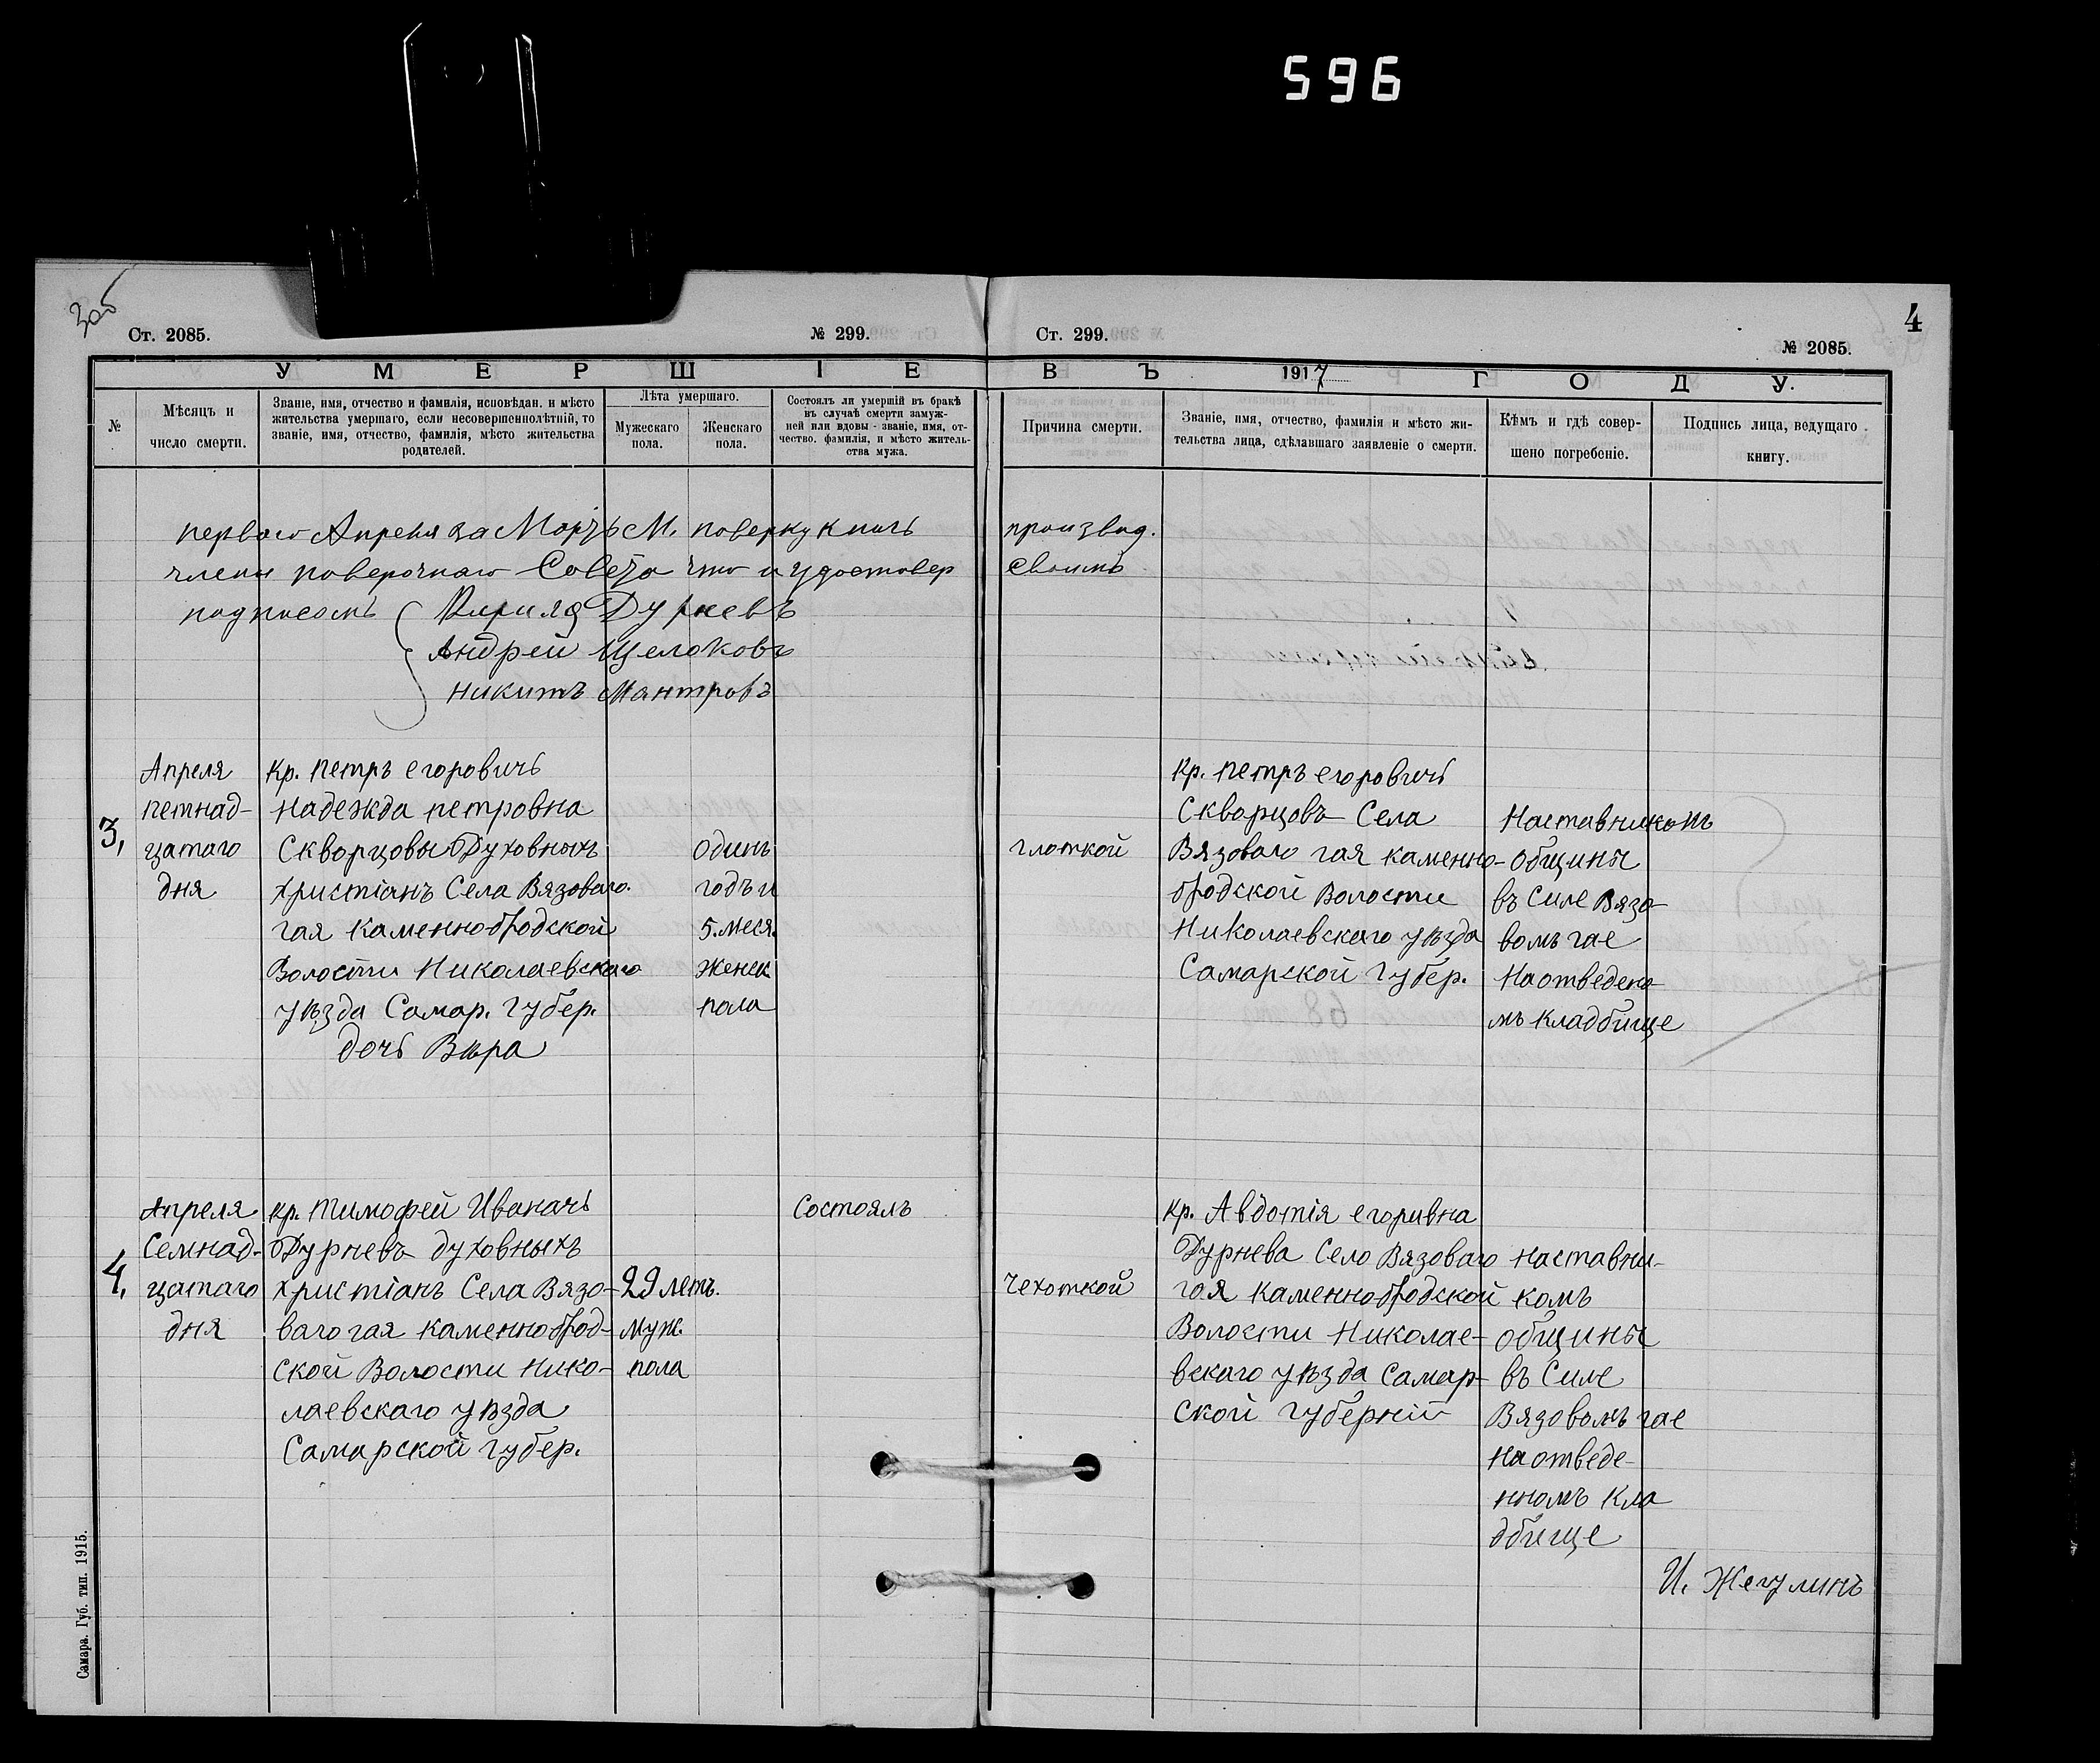 596
3об
4
Ст. 2085.
№ 299.
Ст. 299.
№ 2085.
УМЕРШІЕ
ВЪ 1917 ГОДУ.
№
Мѣсяцъ и
число смерти.
Званіе, имя, отчество и фамилія, исповѣдан. и мѣсто
жительства умершаго, если несовершеннолѣтній, то
званіе, имя, отчество, фамилія, мѣсто жительства
родителей.
Лѣта умершаго.
Мужескаго
пола.
Женскаго
пола.
Состоялъ ли умершій въ бракѣ
въ случаѣ смерти замуж-
ней или вдовы - званіе, имя, от-
чество. фамилія, и мѣсто житель-
ства мужа.
Причина смерти.
Званіе, имя, отчество, фамилія и мѣсто жи-
тельства лица, сдѣлавшаго заявленіе о смерти.
Кѣмъ и гдѣ совер-
шено погребеніе.
Подпись лица, ведущаго
книгу.
первого Апреля за Мартъ М. поверку книгъ производ.
члены поверочнаго Совета что и удостовер своимъ
подписомъ Кирила Дурневъ
Андрей Щелоковъ
никитъ Мантровъ
3,
Апреля
петнад-
цатаго
дня
Кр. петръ егоровичъ
Надежда петровна
Скворцовы Духовныхъ
христіанъ Села Вязоваго.
гая каменнобродской
Волости Николаевскаго
уѣзда Самар. Губер.
дочь Вѣра
одинъ
годъ и
5. меся.
женск
пола
глоткой
Кр. петръ егоровичъ
Скворцовъ Села
Вязоваго гая каменно-
бродской Волости
Николаевскаго уѣзда
Самарской Губер.
Наставникомъ
общины
въ Силе Вязо-
вомъ гае
На отведено-
мъ кладбище
4,
Апреля
Семнад-
цатаго
дня
кр. Тимофей Иваначъ
Дурневъ духовныхъ
христіанъ Села Вязо-
ваго гая каменноброд-
ской Волости Нико-
лаевскаго уѣзда
Самарской губер.
29 летъ.
муж.
пола
Состоялъ
Чехоткой
кр. Авдотія егоривна
Дурнева Село Вязоваго
гая каменнобродской
Волости Николае-
вскаго уѣзда Самар-
ской губерніи
наставни-
комъ
общины
въ Силе
Вязовомъ гае
На отведе-
нномъ Кла
дбище
И. Жегулинъ
Самара. Губ. тип. 1915.